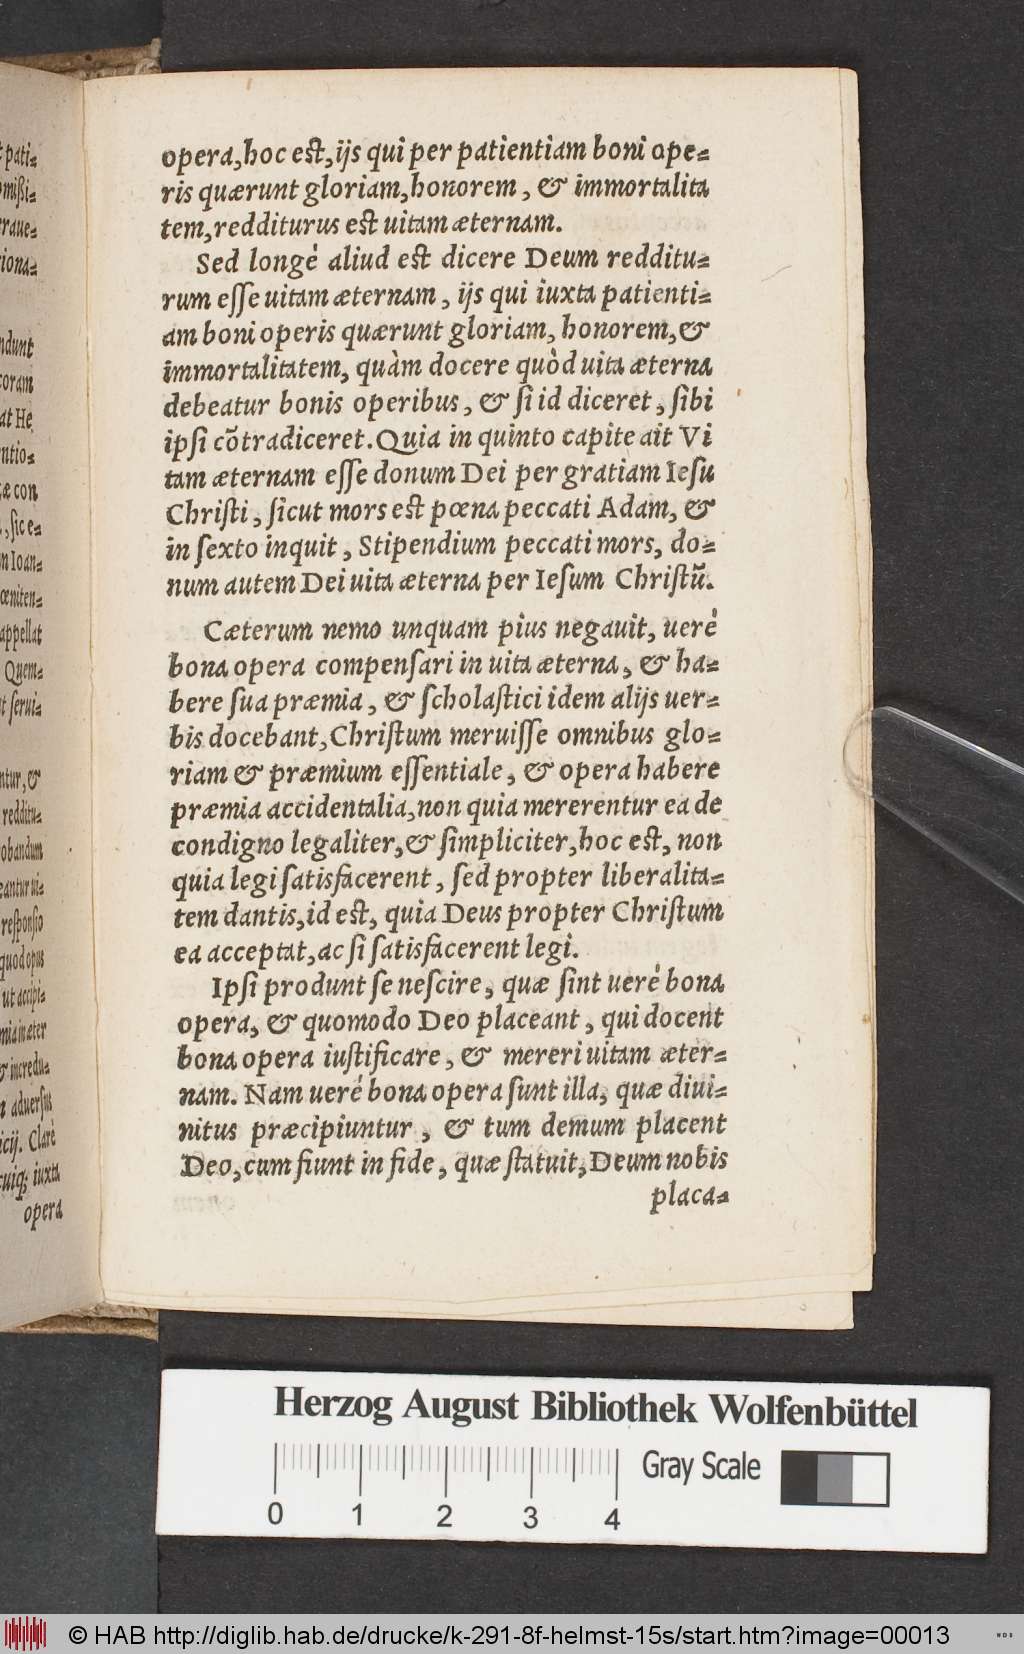 opera, hoc est, ijs qui per patientiam boni ope=
ris quærunt gloriam, honorem, & immortalita
tem, redditurus est uitam æternam.
Sed longè aliud est dicere Deum redditu=
rum eſſe uitam æternam, ijs qui iuxta patienti=
am boni operis quærunt gloriam, honorem, &
immortalitatem, quàm docere quòd uita æterna
debeatur bonis operibus, & ſi id diceret, ſibi
ipſi cõtradiceret. Quia in quinto capite ait Vi
tam æternam eſſe donum Dei per gratiam Ieſu
Chriſti, ſicut mors est pœna peccati Adam, &
in ſexto inquit, Stipendium peccati mors, do=
num autem Dei uita æterna per Ieſum Chriſtũ.
Cæterum nemo unquam pius negauit, uerè
bona opera compenſari in uita æterna, & ha=
bere ſua præmia, & ſcholaſtici idem alijs uer=
bis docebant, Chriſtum meruiſſe omnibus glo=
riam & præmium eſſentiale, & opera habere
præmia accidentalia, non quia mererentur ea de
condigno legaliter, & ſimpliciter, hoc est, non
quia legi ſatisfacerent, ſed propter liberalita=
tem dantis, id est, quia Deus propter Chriſtum
ea acceptat, ac ſi ſatisfacerent legi.
Ipſi produnt ſe neſcire, quæ ſint uerè bona
opera, & quomodo Deo placeant, qui docent
bona opera iuſtificare, & mereri uitam æter=
nam. Nam uerè bona opera ſunt illa, quæ diui=
nitus præcipiuntur, & tum demum placent
Deo, cum fiunt in fide, quæ ſtatuit, Deum nobis
placa=
pati=
omiſſi=
raue=
iona=
ndunt
coram
at He
ntio=
æ con
, ſic e=
n Ioan=
œniten=
appellat
Quem=
t ſerui=
ntur, &
redditu=
obandum
eantur ui=
reſponſio
quod opus
ut accipi=
mia in æter
& incredu=
aduerſus
icij. Clarè
cuiq; iuxta
opera
Herzog August Bibliothek Wolfenbüttel
Gray Scale
0 1 2 3 4
© HAB http://diglib.hab.de/drucke/k-291-8f-helmst-15s/start.htm?image=00013